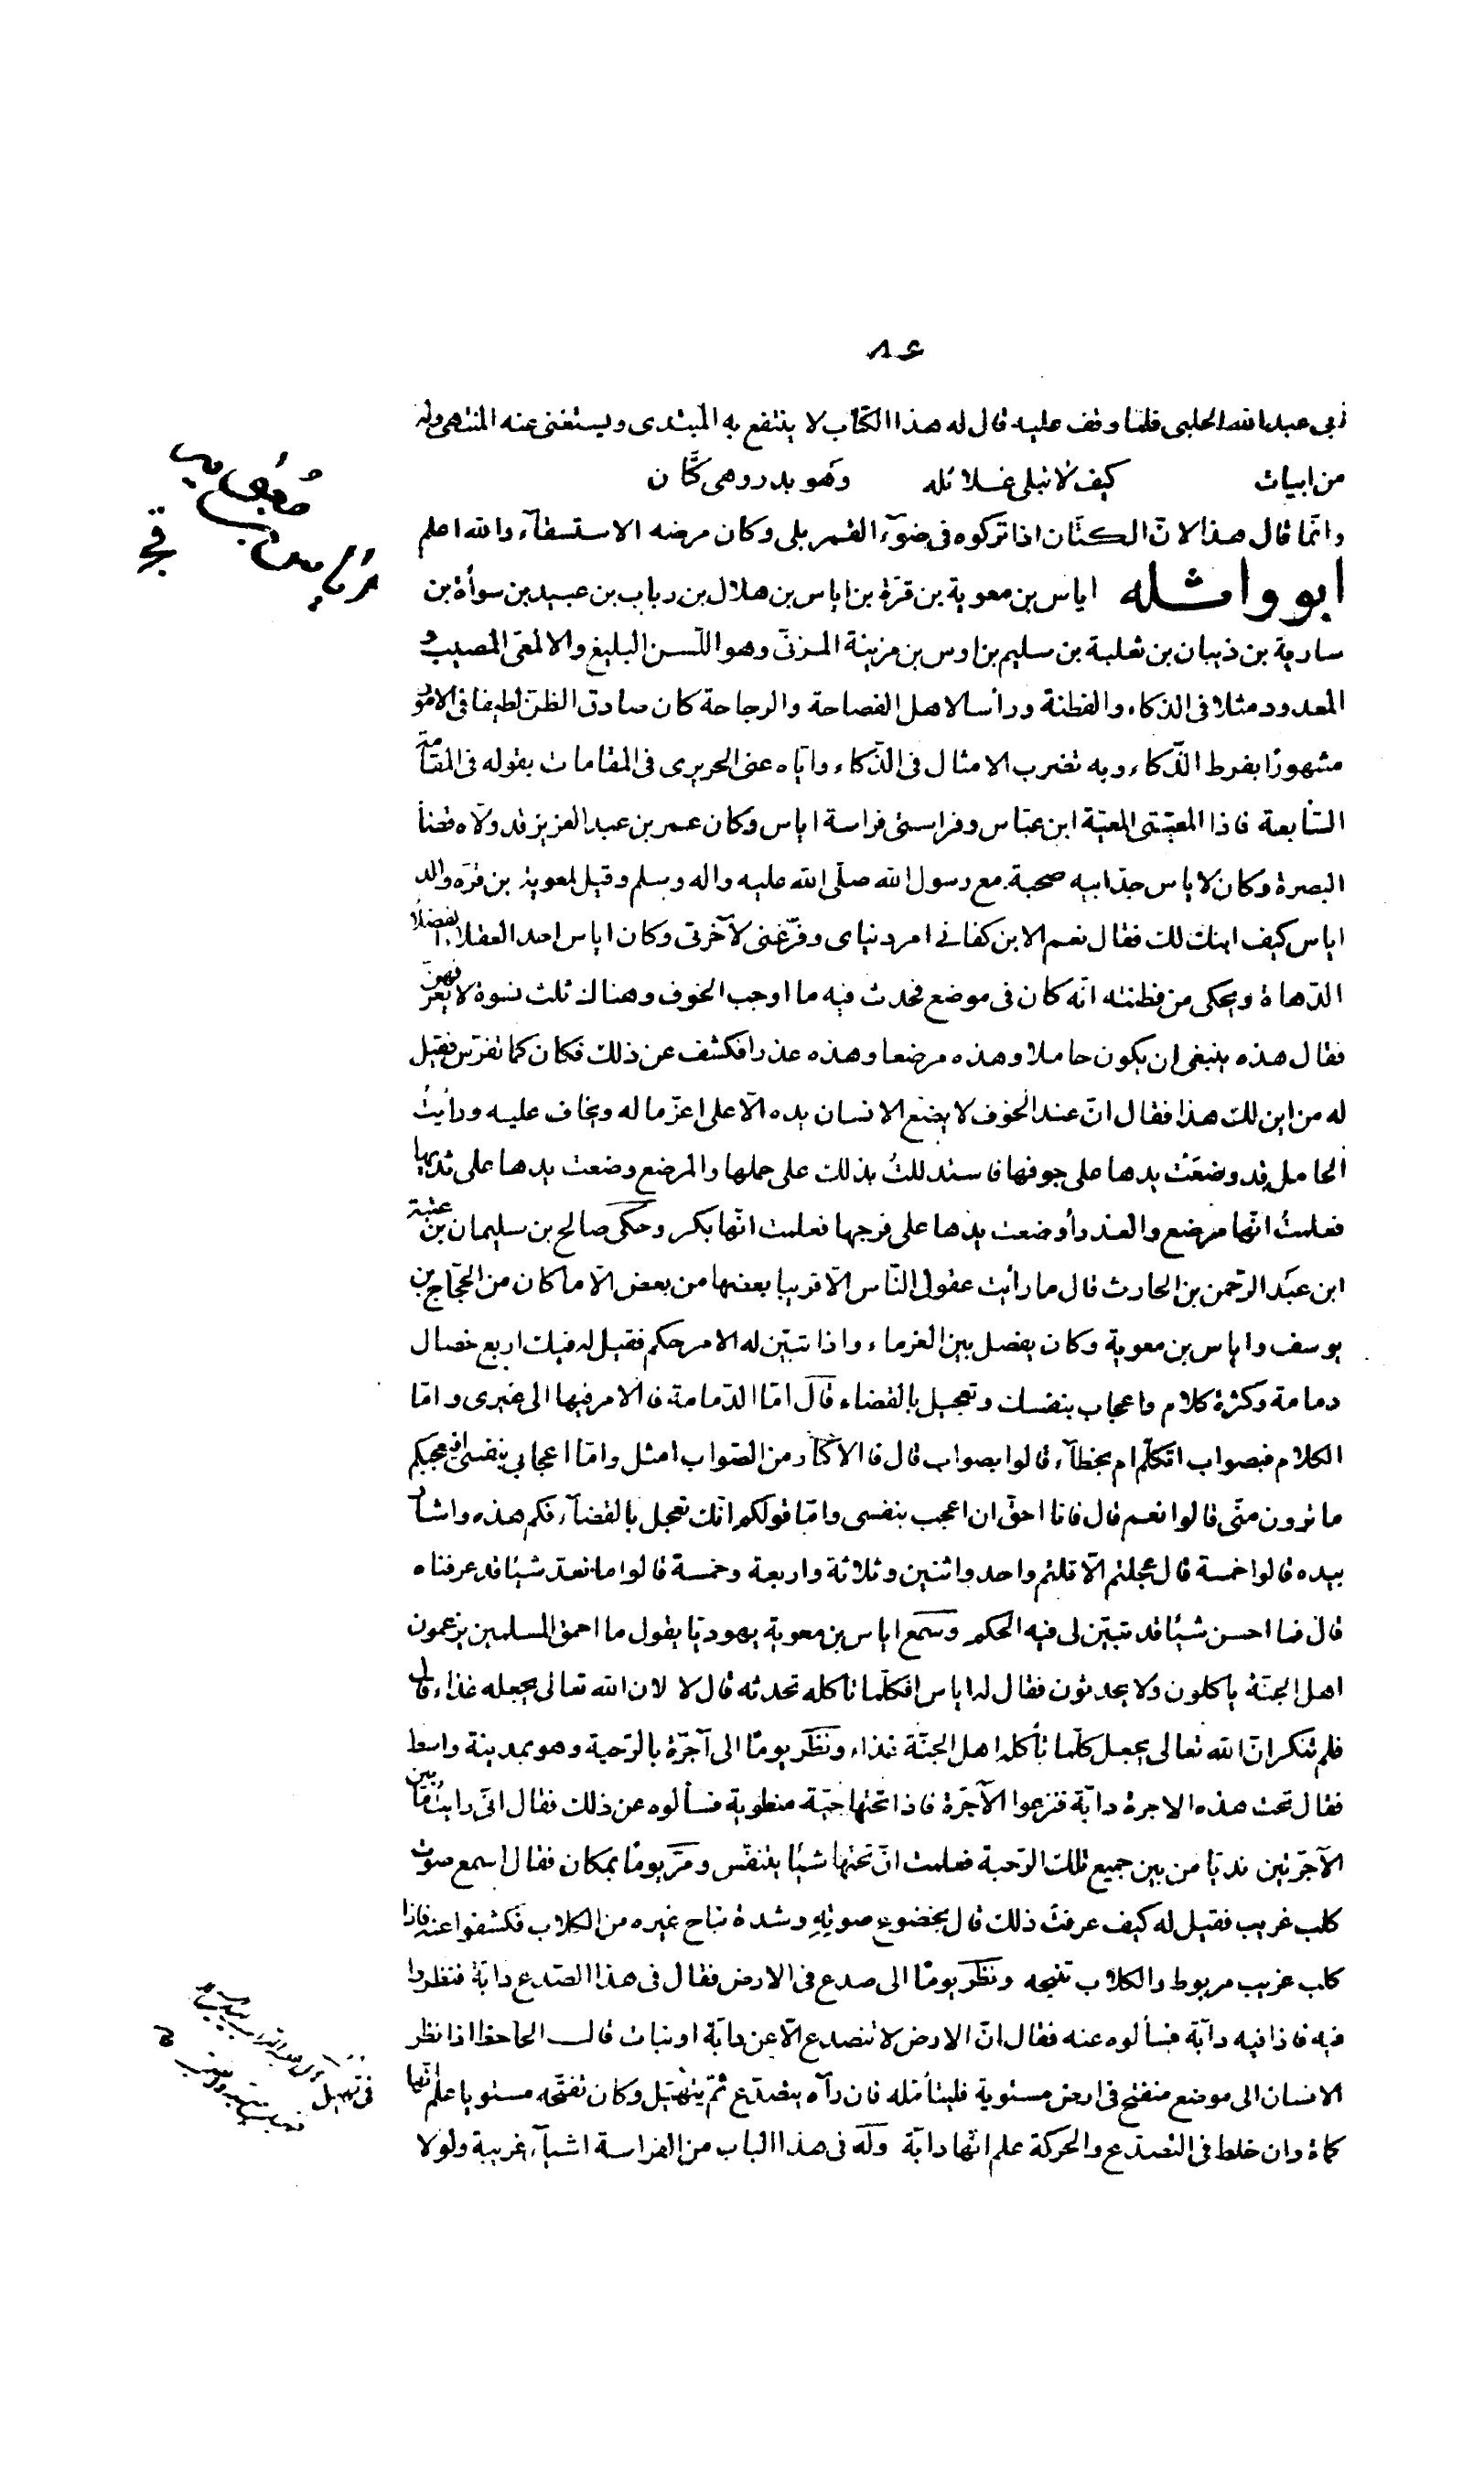 ٨٤
ابى عبدالله الحلبى فلما وقف عليه قال له هذا الكتاب لا ينتفع به المبتدى ويستغنى عنه المنتهى وله
من ابيات كيف لا تبلى غلائله وهو بدر وهى كتّان
وانّما قال هذا لانّ الكتّان اذا تركوه فى ضوء القمر بلى وكان مرضه الاستسقاء والله اعلم
ابو واثله اياس بن معوية بن قرّة بن اياس بن هلال بن رباب بن عبيد بن سوأة بن
سارية بن ذبيان بن ثعلبة بن سليم بن اوس بن مزينة المزنى وهو اللّسن البليغ والالمعى المصيب و
المعدود مثلا فى الذكاء والفطنة ورأسا لاهل الفصاحة والرجاحة كان صادق الظن لطيفا فى الامور
مشهورًا بفرط الذّكاء وبه تضرب الامثال فى الذّكاء واياه عنى الحريرى فى المقامات بقوله فى المقامة
السّابعة فاذا المعيّتى المعيّة ابن عبّاس وفراستى فراسة اياس وكان عمر بن عبد العزيز قد ولّاه قضا
البصرة وكان لاياس جدّ ابيه صحبة مع رسول الله صلّى الله عليه واله وسلم وقيل لمعوية بن قرّه والد
اياس كيف ابنك لك فقال نعم الابن كفانى امر دنياى وفرّغنى لآخرتى وكان اياس احد العقلاء الفضلاء
الدّهاة ويحكى من فطنته انّه كان فى موضع فحدث فيه ما اوجب الخوف وهناك ثلث نسوة لا يعرفهنّ
فقال هذه ينبغى ان يكون حاملا وهذه مرضعا وهذه عذرا فكشف عن ذلك فكان كما تفرّس فقيل
له من اين لك هذا فقال انّ عند الخوف لا يضع الانسان يده الّا على اعزّ ما له ويخاف عليه ورأيتُ
الحامل قد وضعَت يدها على جوفها فاستدللتُ بذلك على حملها والمرضع وضعت يدها على ثديها
فعلمتُ انّها مرضع والعذرأ وضعت يدها على فرجها فعلمت انّها بكر وحكى صالح بن سليمان بن عتبة
ابن عبد الرّحمن بن الحارث قال ما رأيت عقول النّاس الّا قريبا بعضها من بعض الّا ما كان من الحجّاج بن
يوسف واياس بن معوية وكان يفصل بين الغرماء واذا تبيّن له الامر حكم فقيل له فيك اربع خصال
دمامة وكثرة كلام واعجاب بنفسك وتعجيل بالقضاء قال امّا الدّمامة فالامر فيها الى غيرى وامّا
الكلام فبصواب اتكلّم ام بخطآء قالوا بصواب قال فالاكثار من الصّواب امثل وامّا اعجابى بنفسى افيعجبكم
ما ترون منّى قالوا نعم قال فانا احقّ ان اعجب بنفسى وامّا قولكم انّك تعجل بالقضآء فكم هذه واشار
بيده قالوا خمسة قال عجلتم الّا قلتم واحد واثنين وثلاثة واربعة وخمسة قالوا ما نعدّ شيئا قد عرفناه
قال فما احبس شيئا قد تبيّن لى فيه الحكم وسمع اياس بن معوية يهوديّا يقول ما احمق المسلمين يزعمون
اهل الجنّة ياكلون ولا يحدثون فقال له اياس افكلّما تاكله تحدثه قال لا لان الله تعالى يجعله غذاء قال
فلم تنكر انّ الله تعالى يجعل كلّما تأكله اهل الجنّة غذاء ونظر يومًا الى آجرّة بالرّحبة وهو بمدينة واسط
فقال تحت هذه الاجرة دابّة فنزعوا الآجرّة فاذا تحتها حيّة منطوية فسألوه عن ذلك فقال انّى رايت ما بين
الآجرّتين نديّا من بين جميع تلك الرّحبة فعلمت انّ تحتها شيئا يتنفّس ومرّ يومًا بمكان فقال اسمع صوت
كلب غريب فقيل له كيف عرفتَ ذلك قال بخضوع صوتِهِ وشدة نباح غيره من الكلاب فكشفوا عنه فاذا
كلب غريب مربوط والكلاب تنبحه ونظر يومًا الى صدع فى الارض فقال فى هذا الصّدع دابّة فنظروا
فيه فاذا فيه دابّة فسألوه عنه فقال انّ الارض لا تنصدع الّا عن دابّة او نبات قال الجاحظ اذا نظر
الانسان الى موضع منفتح فى ارض مستوية فليتأمّله فان رآه يتصدّع ثمّ يتهيّل وكان تفتّحه مستويا علم انّها
كماة وان خلط فى التصدّع والحركة علم انّها دابّة وله فى هذا الباب من الفراسة اشيآء غريبة ولولا